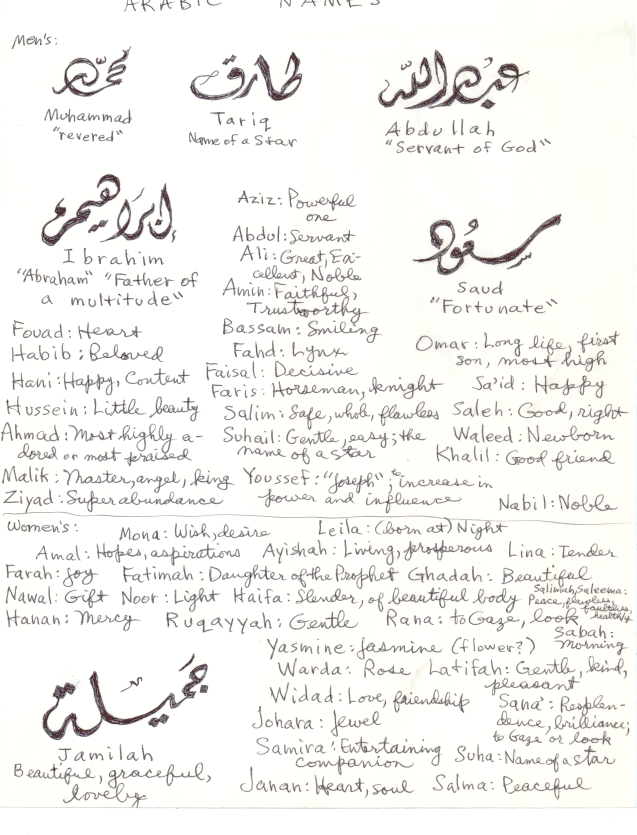 ARABIC NAMES
Men's:
محمد
طارق
عبد الله
Muhammad
"revered"
Tariq
Name of a Star
Abdullah
"Servant of God"
إبراهيم
Ibrahim
"Abraham" "Father of
a multitude"
سعود
Saud
"Fortunate"
Aziz: Powerful
one
Abdul: Servant
Ali: Great, Ex-
cellent, Noble
Amin: Faithful,
Trustworthy
Bassam: Smiling
Fahd: Lynx
Faisal: Decisive
Faris: Horseman, knight
Salim: Safe, whole, flawless
Suhail: Gentle, easy; the
name of a star
Youssef: "Joseph"; to increase in
power and influence
Fouad: Heart
Habib: Beloved
Hani: Happy, Content
Hussein: Little beauty
Ahmad: Most highly a-
dored or most praised
Malik: Master, angel, king
Ziyad: Superabundance
Omar: Long life, first
son, most high
Sa'id: Happy
Saleh: Good, right
Waleed: Newborn
Khalil: Good friend
Nabil: Noble
Women's:
Mona: Wish, desire
Leila: (born at) Night
Amal: Hopes, aspirations
Ayishah: Living, prosperous
Lina: Tender
Farah: Joy
Fatimah: Daughter of the Prophet
Ghadah: Beautiful
Nawal: Gift
Noor: Light
Haifa: Slender, of beautiful body
Salimah, Saleema:
Peace, flawless,
faultless,
healthy
Hanan: Mercy
Ruqayyah: Gentle
Rana: to Gaze, look
Sabah:
Morning
Yasmine: Jasmine (flower?)
Warda: Rose
Latifah: Gentle, kind,
pleasant
Widad: Love, friendship
Sana': Resplen-
dence, brilliance;
to Gaze or look
Johara: Jewel
Samira: Entertaining
companion
Suha: Name of a star
Janan: Heart, soul
Salma: Peaceful
جميلة
Jamilah
Beautiful, graceful,
lovely